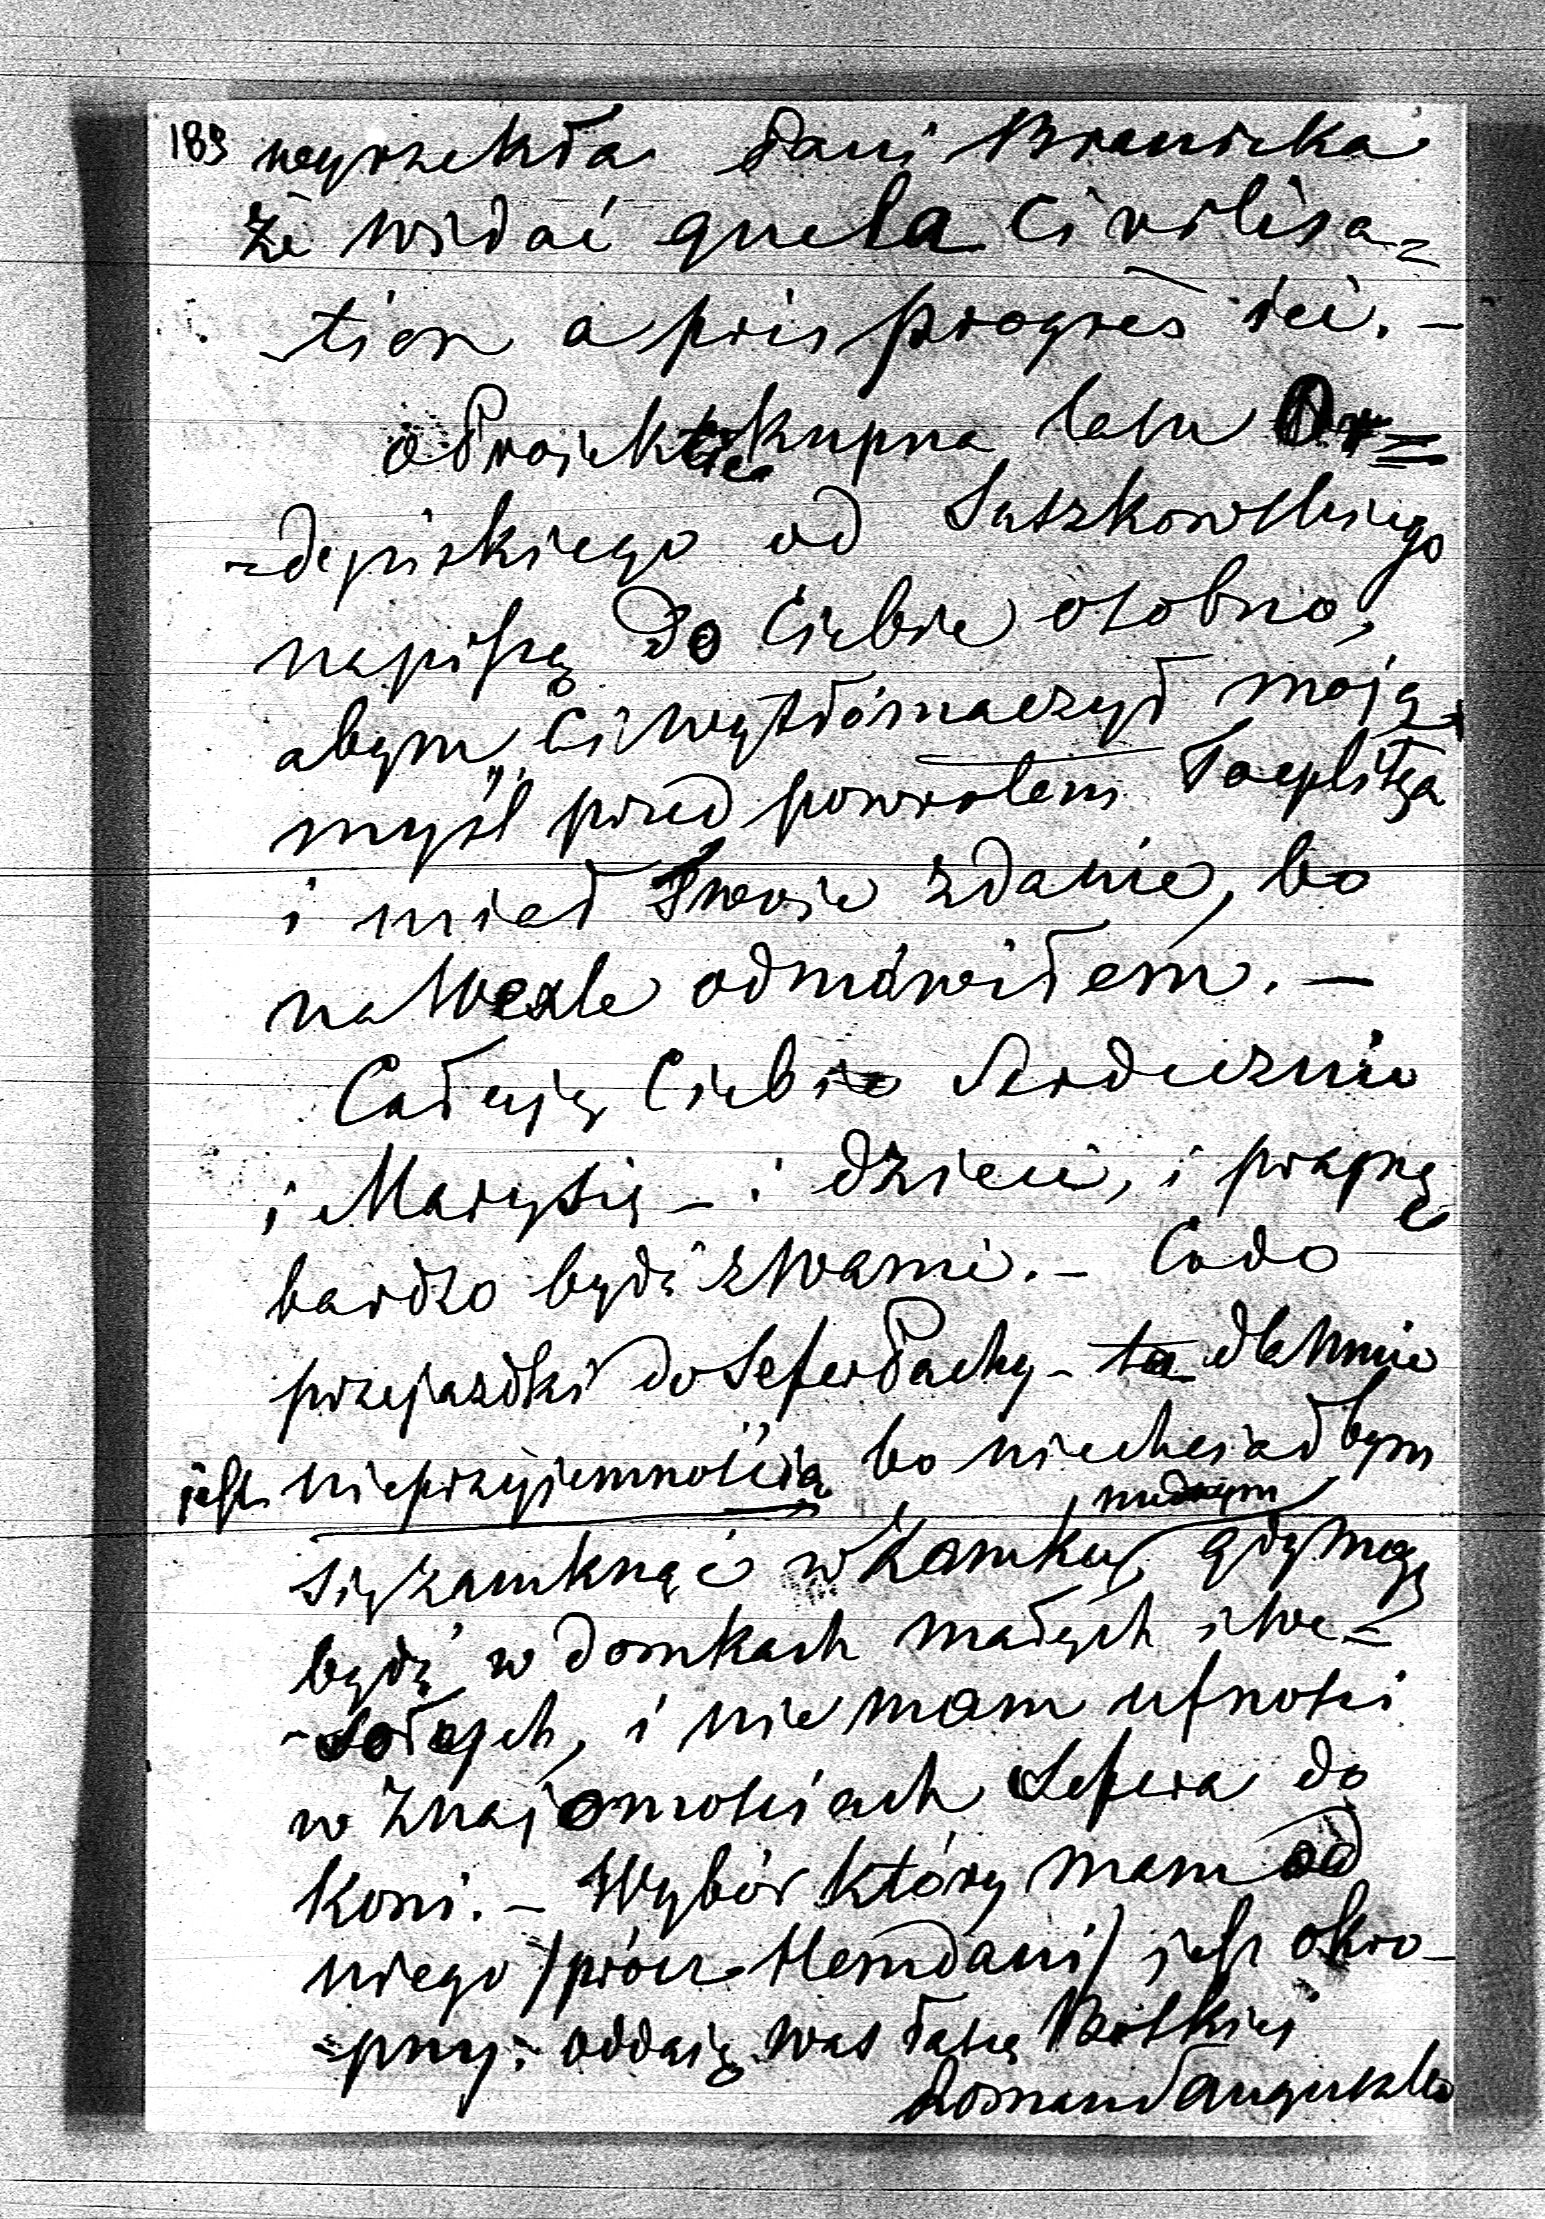 189 wyrzekła Pani Branicka
że widać que la Civilisa=
-tion a pris progrès ici. -
o Projektcie kupna lasu
od Saszkowskiego
napiszę do Ciebie osobno,
abym Ci wytłómaczył moją
myśl przed powrotem Toeplitza
i miał Twoie zdanie, bo
na Wexle odmówiłem. -
Całuję Ciebie Serdecznie
i Marysię - i dzieci, i pragnę
bardzo bydź z Wami. - Co do
przejazdki do Sefer Paszy - ta dla Mnie
jest nieprzyjemnością bo niechciałbym
się zamknąć w Zamku nudnym gdy mogę
bydź w domkach małych i we=
-sołych, i nie mam ufności
w Znajomościach Sefera do
Koni. - Wybór który mam od
niego /prócz Hemdani/ jest okro-
=pny; oddaię was łasce Boskiej
Roman Sanguszko